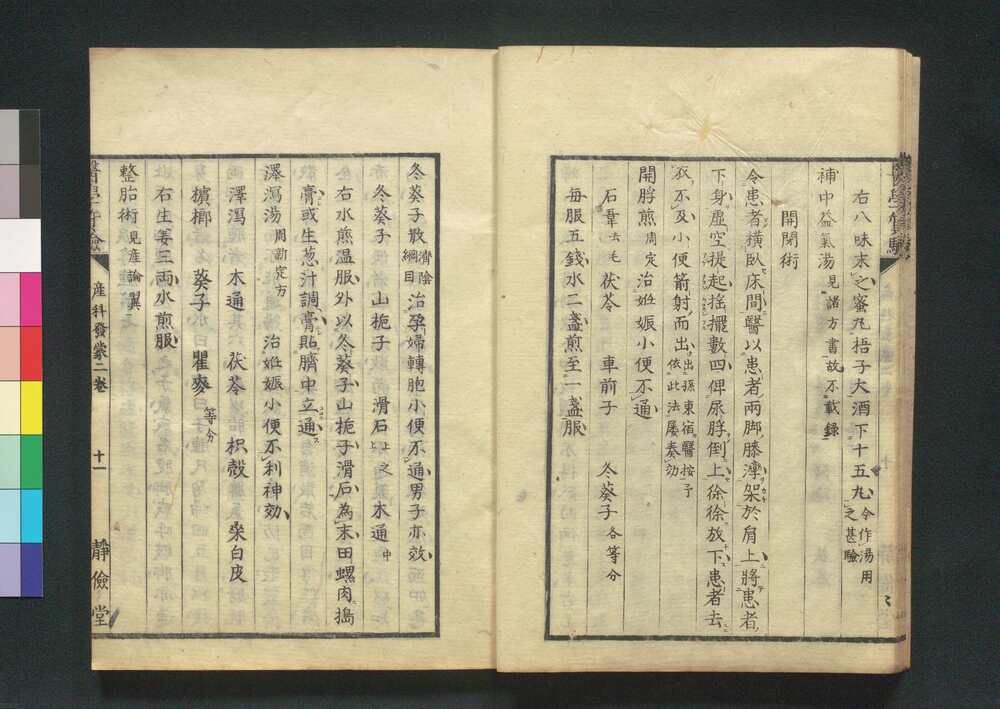 右八味末之蜜丸梧子大酒下十五丸 今作湯用之甚驗
補中益氣湯 見諸方書故不載錄
開閉術
令患者横臥床間醫以患者兩脚膝潭架於肩上將患者
下身虛空提起搖擺數四俾尿脬倒上徐徐放下患者去
衣不及小便箭射而出 出孫東宿醫按予依此法屢奏効
開脬煎 周定 治姙娠小便不通
石韋 去毛 茯苓 車前子 冬葵子 各等分
每服五錢水二盞煎至一盞服
冬葵子散 濟陰綱目 治孕婦轉胞小便不通男子亦效
冬葵子 山梔子 滑石 上之 木通 中
右水煎温服外以冬葵子山梔子滑石為末田螺肉搗
膏或生葱汁調膏貼臍中立通
澤瀉湯 周新定方 治姙娠小便不利神効
澤瀉 木通 茯苓 枳殼 桒白皮
檳榔 葵子 瞿麥 等分
右生姜三兩水煎服
整胎術 見産論翼
産科發蒙二卷 十一 靜儉堂